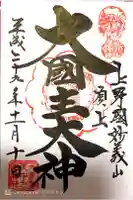 上野國妙義山
頂上
大國主大神
平成二十九年十一月十日